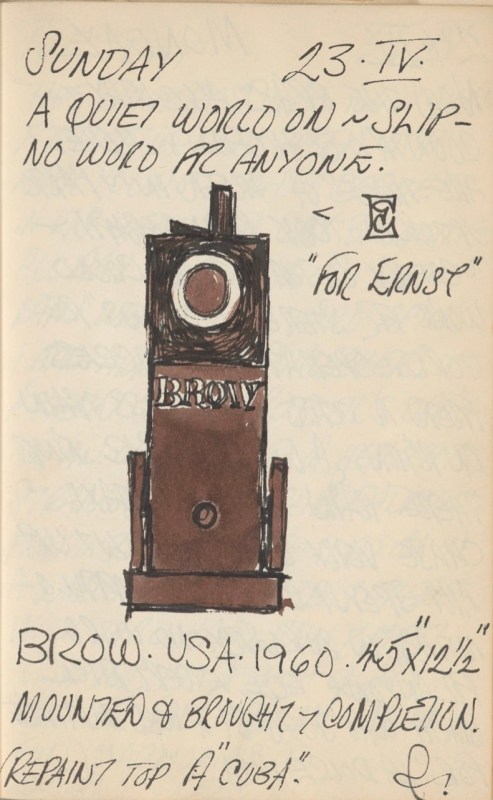 SUNDAY 23·IV.
A QUIET WORLD ON ~ SLIP-
NO WORD FR ANYONE.
< E
"FOR ERNST"
BROW
BROW. USA. 1960. 45"X12½"
MOUNTED & BROUGHT 7 COMPLETION.
(REPAINT TOP A "CUBA".